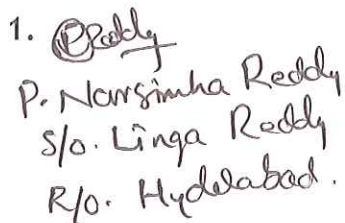 1. PReddy
P. Narsimha Reddy
S/o. Linga Reddy
R/o. Hyderabad.